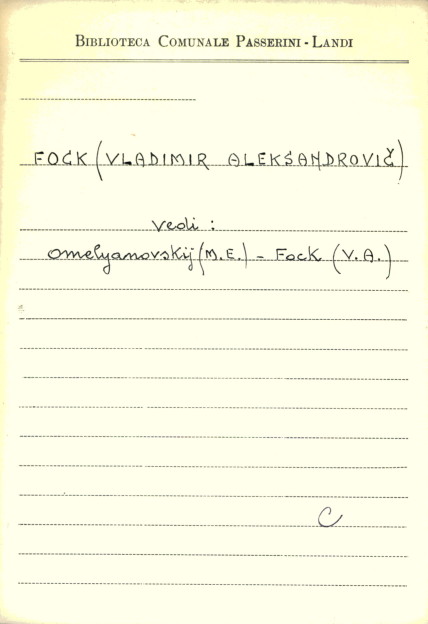 BIBLIOTECA COMUNALE PASSERINI-LANDI
FOCK (VLADIMIR ALEKSANDROVIČ)
vedi :
Omelyanovskij (M.E.) - Fock (V.A.)
C